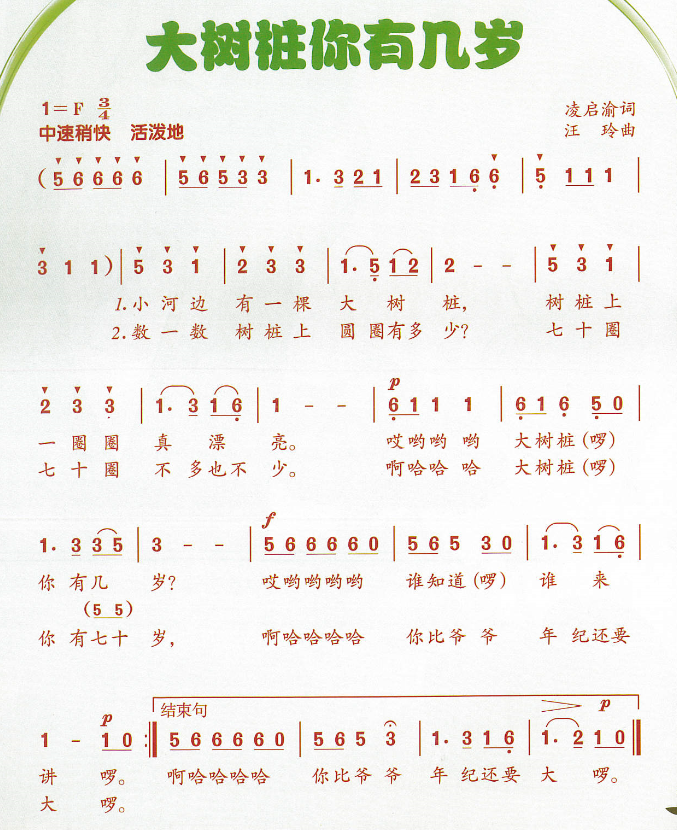 大树桩你有几岁
1=F 3/4
凌启渝词
中速稍快 活泼地
汪 玲曲
(5 6 6 6 6 6 | 5 6 5 3 3 | 1. 3 2 1 | 2 3 1 6 6 | 5 1 1 1 |
3 1 1) | 5 3 1 | 2 3 3 | 1. 5 1 2 | 2 - - | 5 3 1 |
1.小河边 有一棵 大 树 桩, 树桩上
2.数一数 树桩上 圆圈有多少? 七十圈
p
2 3 3 | 1. 3 1 6 | 1 - - | 6 1 1 1 | 6 1 6 5 0 |
一圈圈 真 漂 亮。 哎哟哟 哟 大树桩(啰)
七十圈 不多也不 少。 啊哈哈 哈 大树桩(啰)
f
1. 3 3 5 | 3 - - | 5 6 6 6 6 0 | 5 6 5 3 0 | 1. 3 1 6 |
你 有几 岁? 哎哟哟哟哟 谁知道(啰) 谁 来
(5 5)
你 有七十 岁, 啊哈哈哈哈 你比爷爷 年纪还要
结束句
p p
1 - 1 0 :‖ 5 6 6 6 6 0 | 5 6 5 3 | 1. 3 1 6 | 1. 2 1 0 ‖
讲 啰。 啊哈哈哈哈 你比爷爷 年纪还要 大 啰。
大 啰。